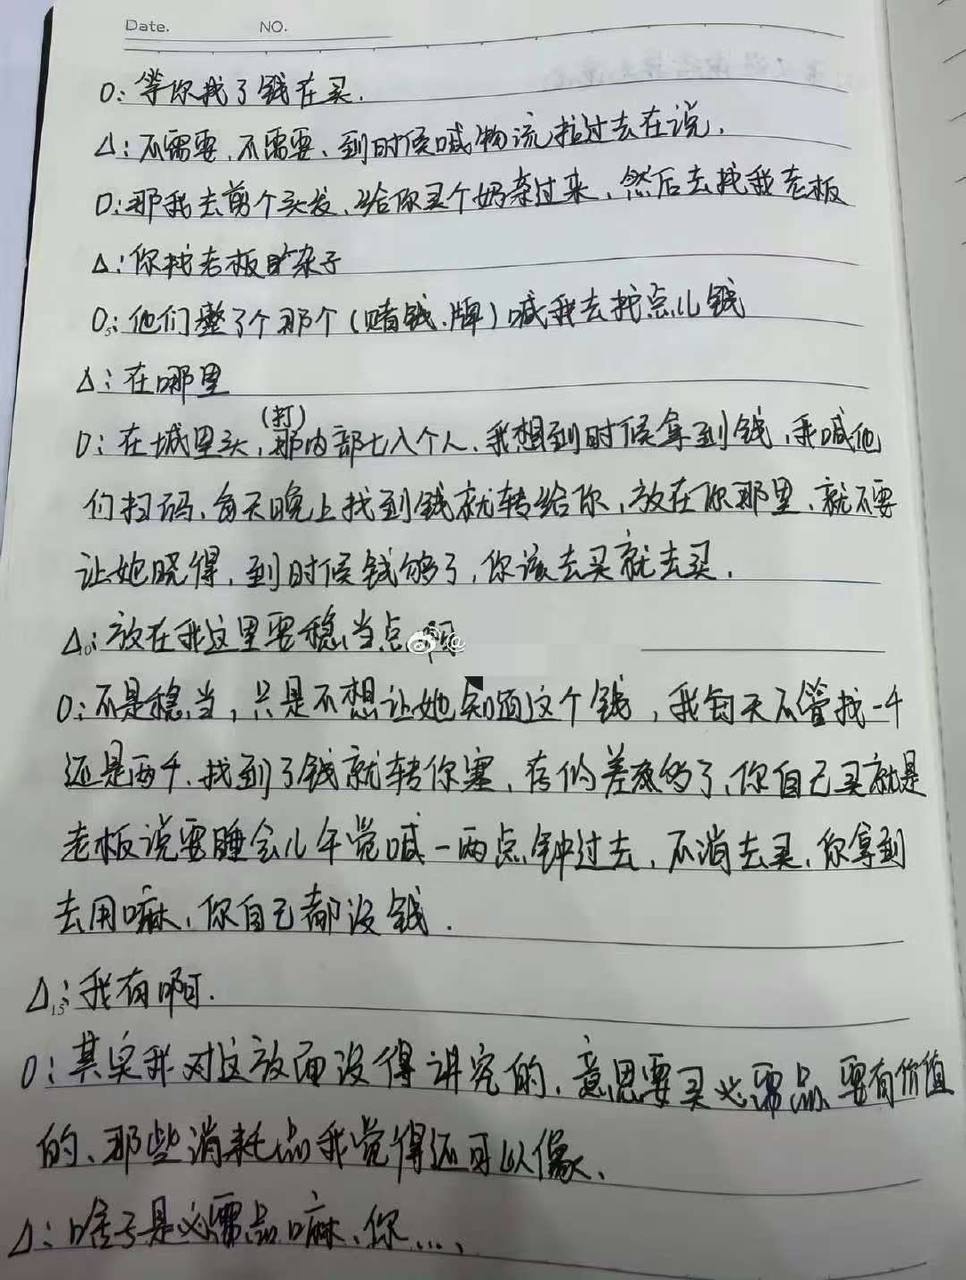 Date. NO.
O: 等你找了钱在买.
Δ: 不需要、不需要、到时候喊物流拉过去在说.
O: 那我去剪个头发、给你买个奶茶过来、然后去找我老板
Δ: 你找老板旷杂子
O: 他们整了个那个(赌钱.牌)喊我去找点儿钱
Δ: 在哪里
(打)
O: 在城里头,那内部七八个人、我想到时候拿到钱,我喊他
们扫码、每天晚上找到钱就转给你、放在你那里、就不要
让她晓得,到时候钱够了,你该去买就去买.
Δ: 放在我这里要稳当点啊
O: 不是稳当,只是不想让她知道这个钱,我每天不管找一千
还是两千.找到了钱就转你塞,存的差不多够了、你自己买就是
老板说要睡会儿午觉喊一两点钟过去、不消去买、你拿到
去用嘛、你自己都没钱.
Δ: 15 我有啊.
O: 其实我对这放面没得讲究的、意思要买必需品要有价值
的、那些消耗品我觉得还可以像、
Δ: 啥子是必需品嘛、你....、